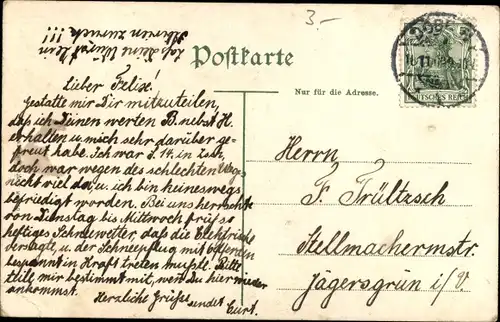 3.-
Laß Deine Wurst kein
zurück
!!!
Postkarte
Nur für die Adresse.
DEUTSCHES REICH
Lieber Felix!
Gestatte mir Dir mitzuteilen,
daß ich Deinen werten B. nebst K.
erhalten u. mich sehr darüber ge-
freut habe. Ich war d. 14. in
doch war wegen des schlechten
nicht viel da, u. ich bin keineswegs
befriedigt worden. Bei uns herrschte
von Dienstag bis Mittwoch früh so
heftiges Schneewetter, daß die Elektrische
versagte, u. der Schneepflug mit 6 Pferden
bespannt in Kraft treten mußte. Bitte
teile mir bestimmt mit, wenn Du hier wieder
ankommst.
Herzliche Grüße
sendet Curt.
Herrn
F. Trültzsch
Stellmachermstr.
Jägersgrün i/V.